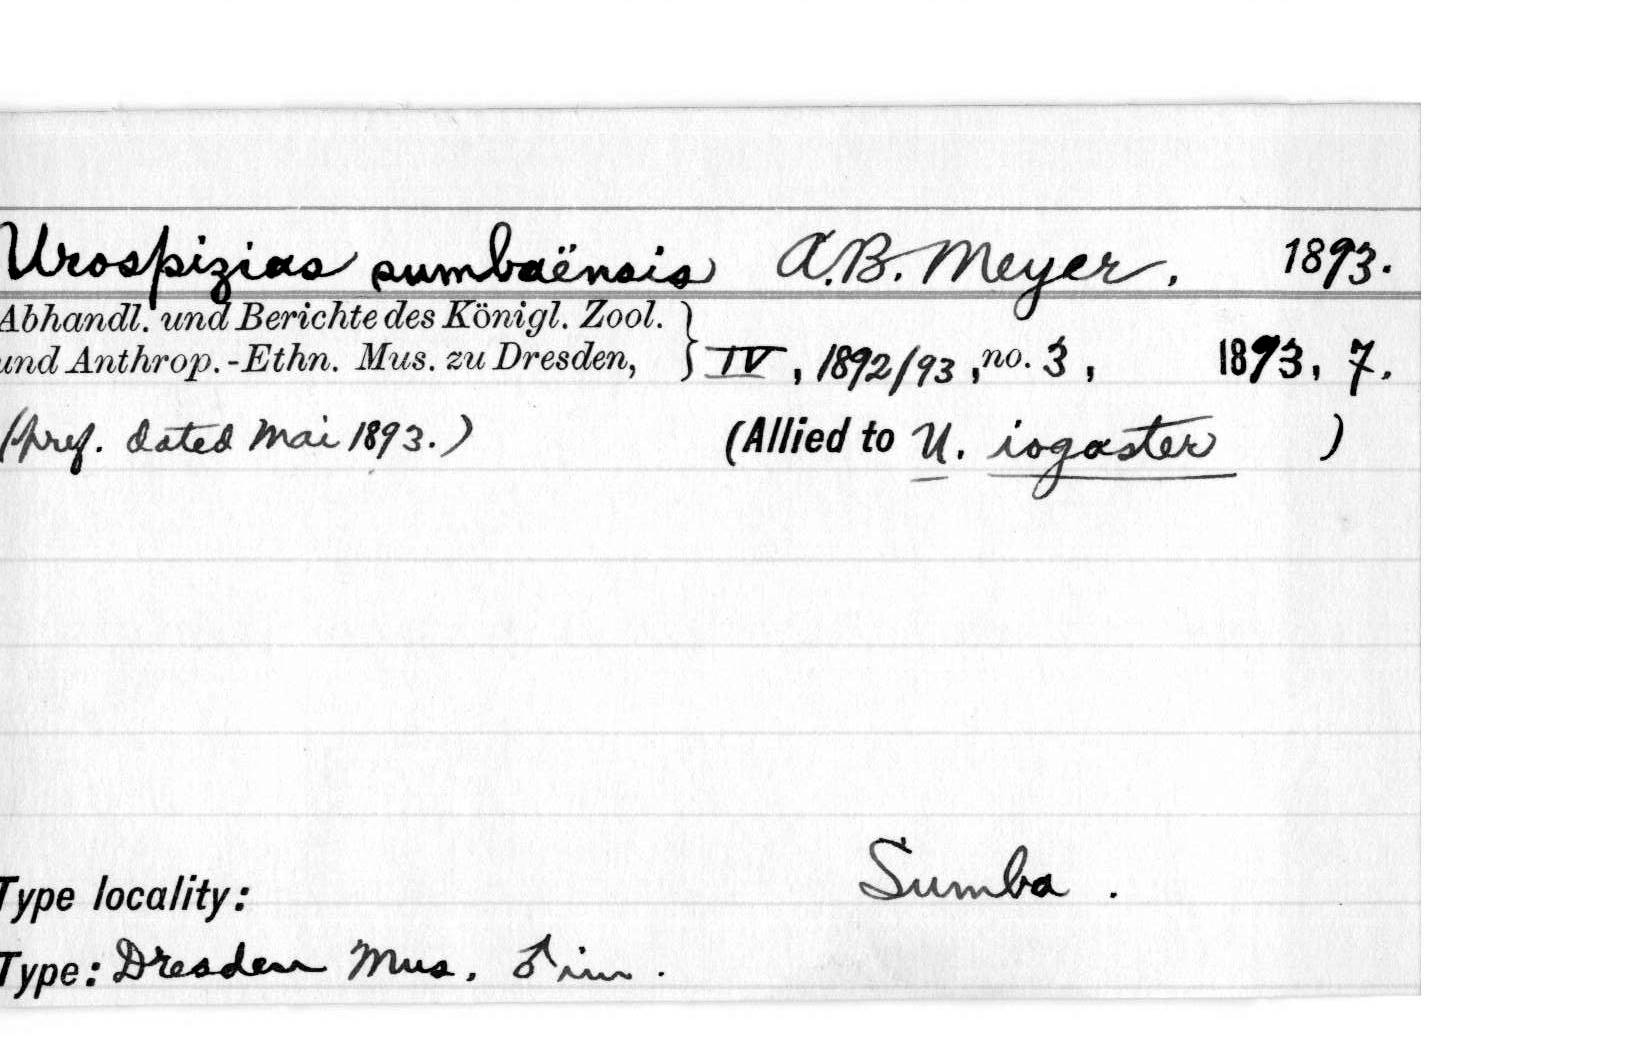 Urospizias sumbaënsis A.B. Meyer, 1893.
Abhandl. und Berichte des Königl. Zool.
und Anthrop.-Ethn. Mus. zu Dresden, } IV, 1892/93, no. 3, 1893, 7.
(pref. dated Mai 1893.) (Allied to U. iogaster )
Type locality: Sumba.
Type: Dresden Mus. ♂ im.